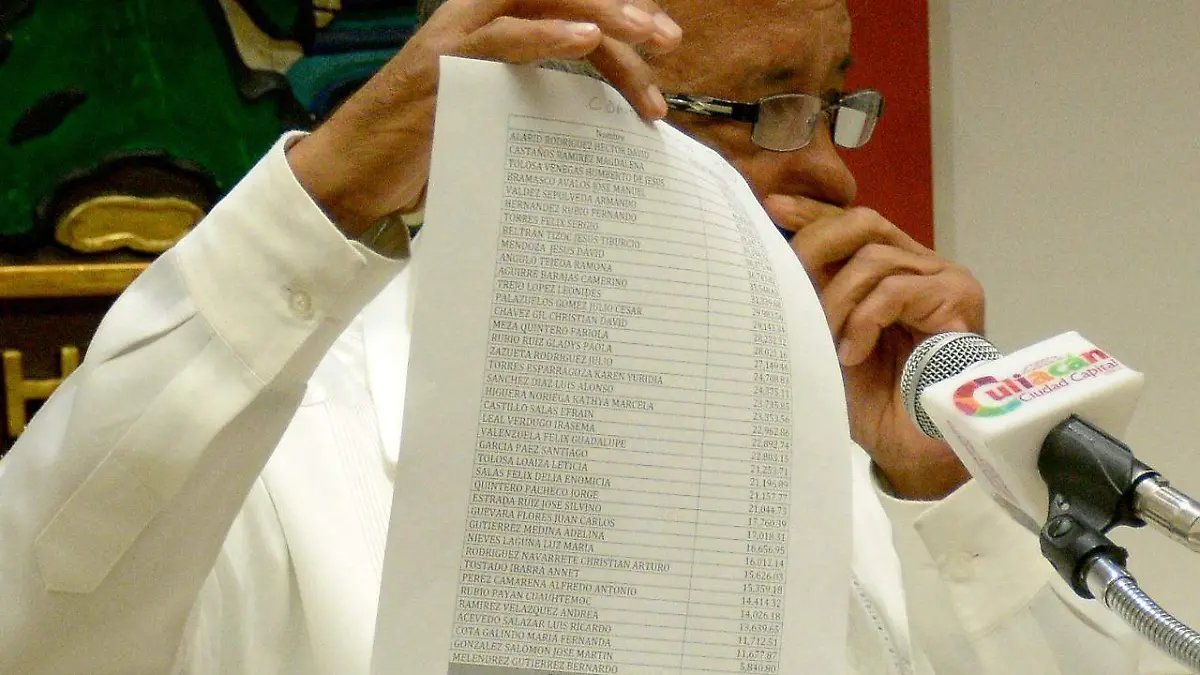 Nombre
ALARID RODRIGUEZ HECTOR DAVID
CASTAÑOS RAMIREZ MAGDALENA
TOLOSA VENEGAS HUMBERTO DE JESUS
BRAMASCO AVALOS JOSE MANUEL
VALDEZ SEPULVEDA ARMANDO
HERNANDEZ RUBIO FERNANDO
TORRES FELIX SERGIO
BELTRAN TIZOC JESUS TIBURCIO
MENDOZA JESUS DAVID
ANGULO TEJEDA RAMONA
AGUIRRE BARAJAS CAMERINO
TREJO LOPEZ LEONIDES
PALAZUELOS GOMEZ JULIO CESAR
CHAVEZ GIL CHRISTIAN DAVID
MEZA QUINTERO FABIOLA
RUBIO RUIZ GLADYS PAOLA
ZAZUETA RODRIGUEZ JULIO
TORRES ESPARRAGOZA KAREN YURIDIA
SANCHEZ DIAZ LUIS ALONSO
HIGUERA NORIEGA SATHYA MARCELA
CASTILLO SALAS EFRAIN
LEAL VERDUGO IRASEMA
VALENZUELA FELIX GUADALUPE
GARCIA PAEZ SANTIAGO
TOLOSA LOAIZA LETICIA
SALAS FELIX DELIA ENOMICIA
QUINTERO PACHECO JORGE
ESTRADA RUIZ JOSE SILVINO
GUEVARA FLORES JUAN CARLOS
GUTIERREZ MEDINA ADELINA
NIEVES LAGUNA LUZ MARIA
RODRIGUEZ NAVARRETE CHRISTIAN ARTURO
TOSTADO IBARRA ANNET
PEREZ CAMARENA ALFREDO ANTONIO
RUBIO PAYAN CUAUHTEMOC
RAMIREZ VELAZQUEZ ANDREA
ACEVEDO SALAZAR LUIS RICARDO
COTA GALINDO MARIA FERNANDA
GONZALEZ SALOMON JOSE MARTIN
MELENDREZ GUTIERREZ BERNARDO
29,141.34
28,232.32
28,025.16
27,149.46
24,798.83
24,375.11
23,735.85
23,353.56
22,962.86
22,892.74
22,883.15
21,253.71
21,196.89
21,157.77
21,044.73
17,760.39
17,018.31
16,656.95
16,012.14
15,626.03
15,359.18
14,414.32
14,026.18
13,639.65
11,712.51
11,677.87
5,840.80
Culiacán
Ciudad Capital